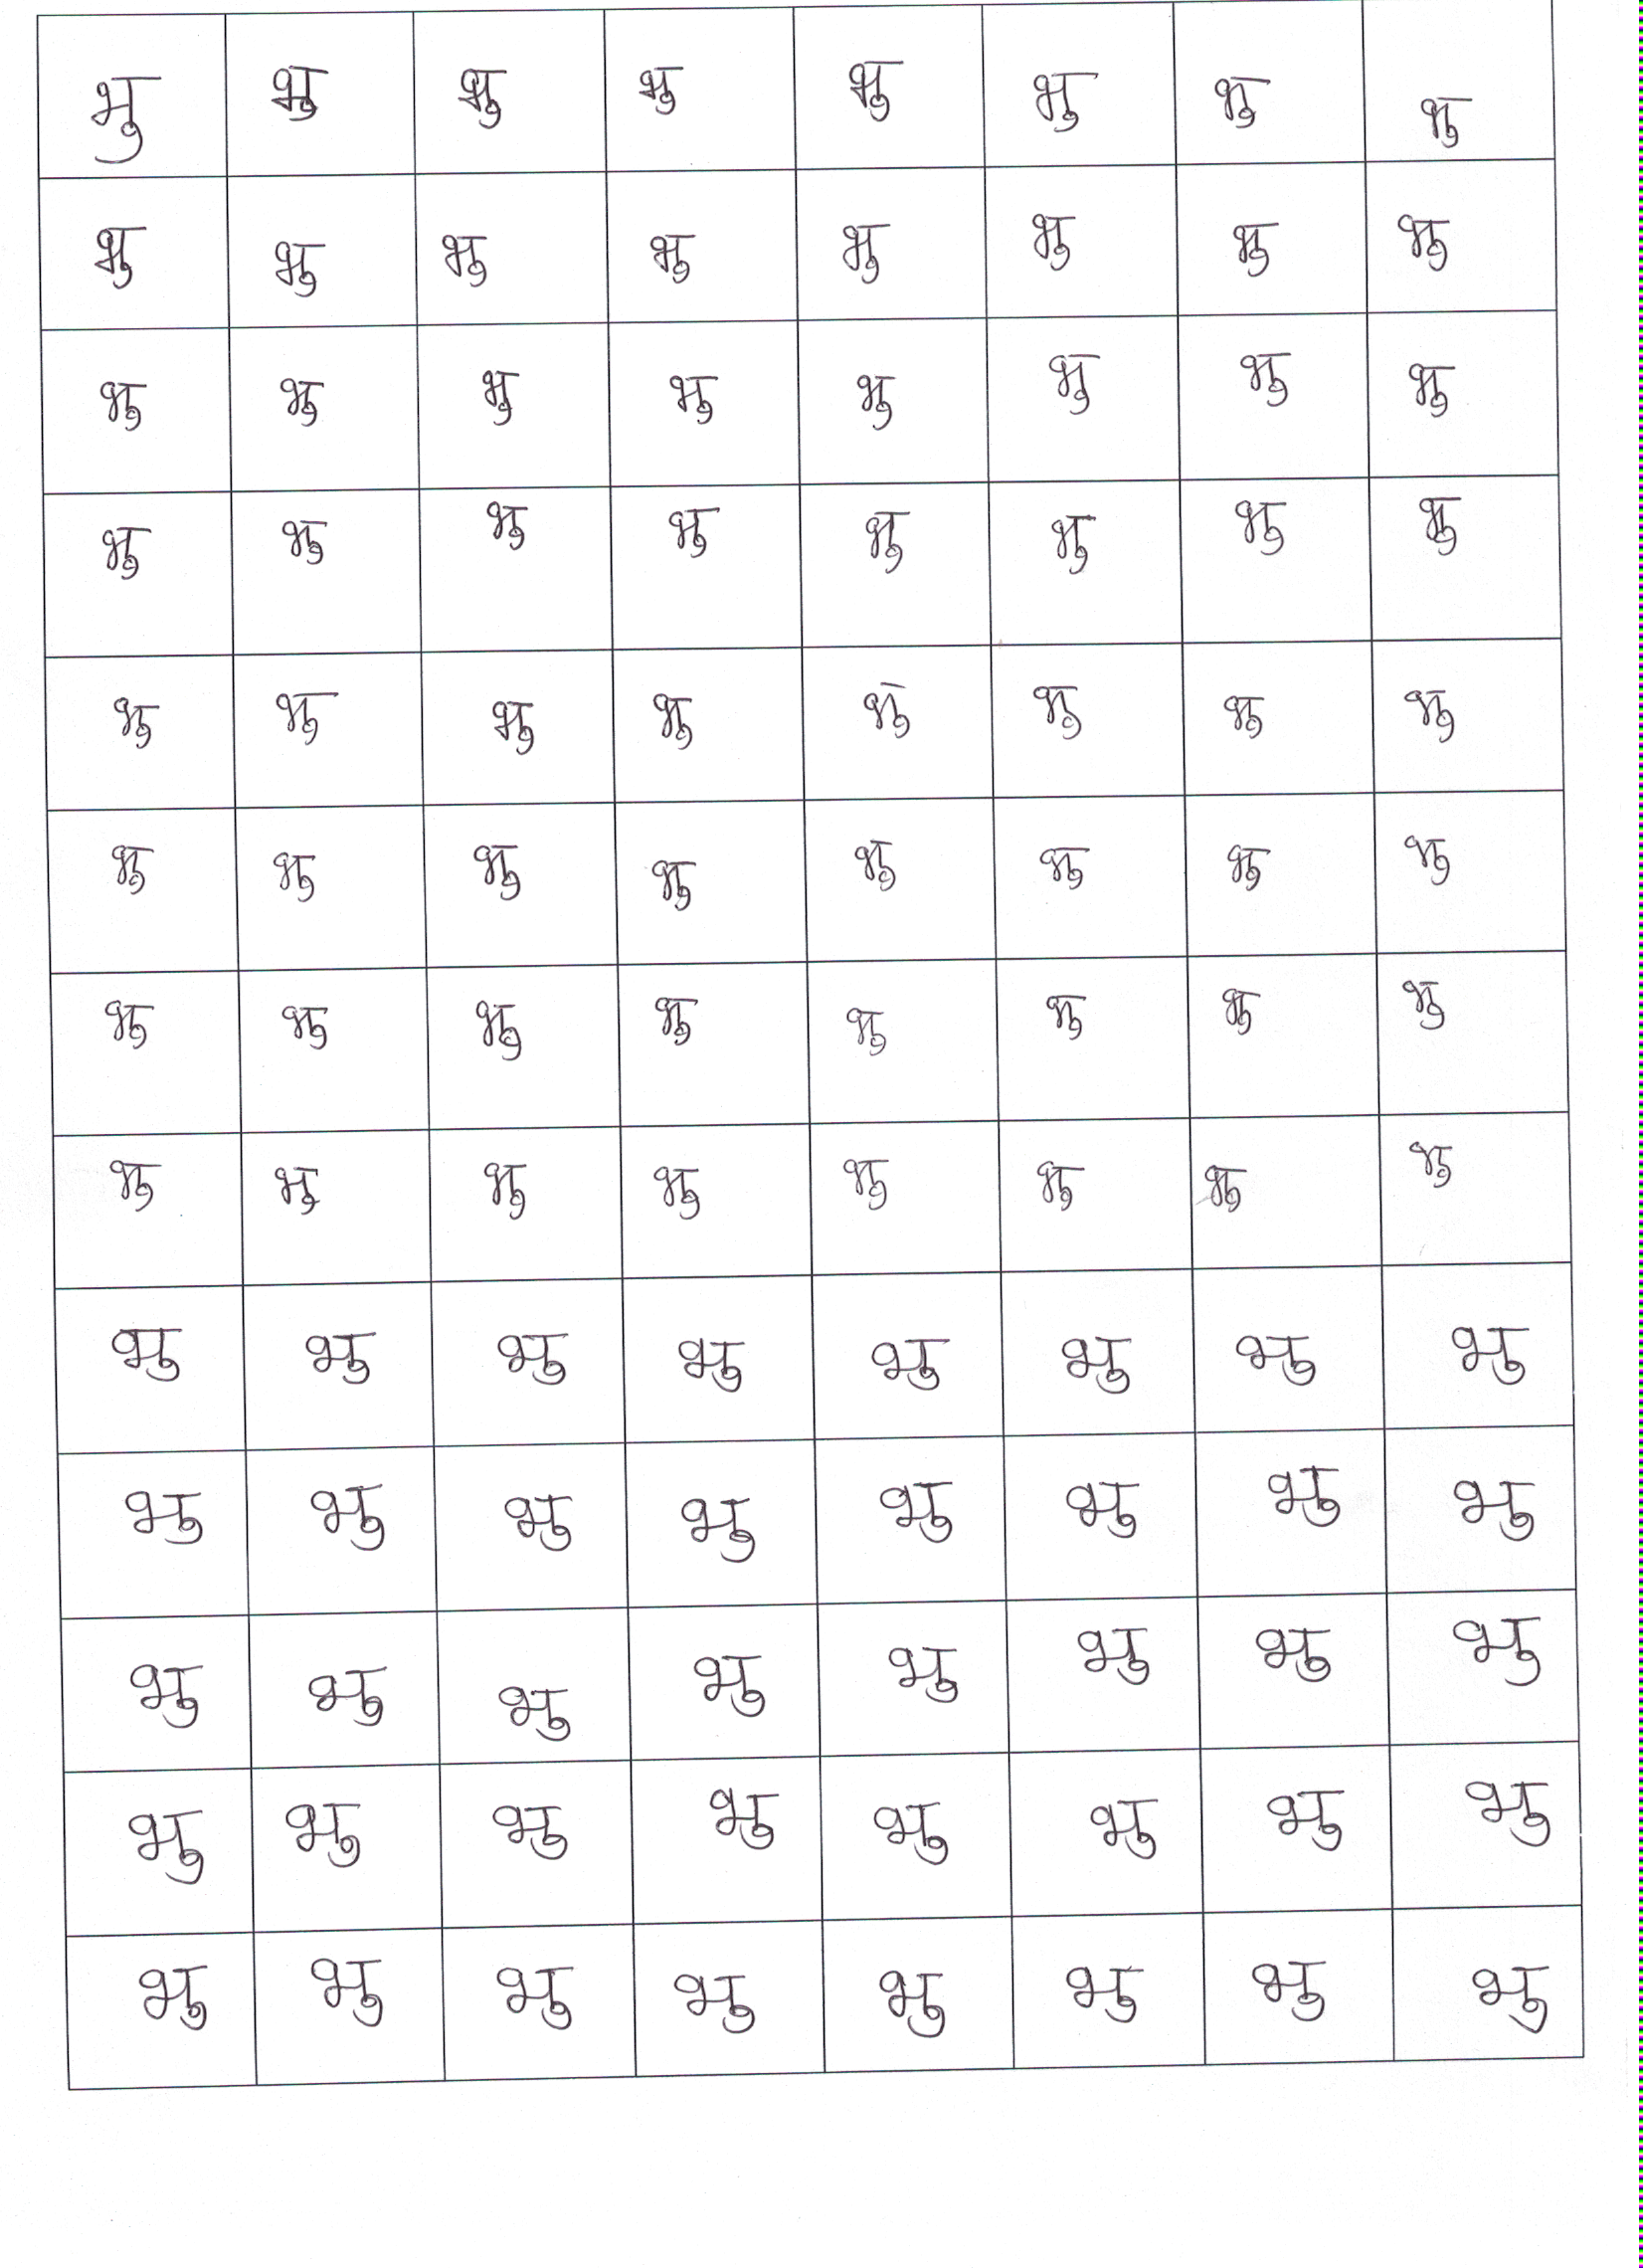 भु भु भु भु भु भु भु भु
भु भु भु भु भु भु भु भु
भु भु भु भु भु भु भु भु
भु भु भु भु भु भु भु भु
भु भु भु भु भु भु भु भु
भु भु भु भु भु भु भु भु
भु भु भु भु भु भु भु भु
भु भु भु भु भु भु भु भु
भु भु भु भु भु भु भु भु
भु भु भु भु भु भु भु भु
भु भु भु भु भु भु भु भु
भु भु भु भु भु भु भु भु
भु भु भु भु भु भु भु भु